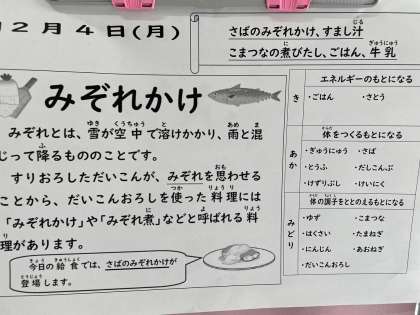 12月4日(月)
さばのみぞれかけ、すまし汁
こまつなの煮びたし、ごはん、牛乳
みぞれかけ
みぞれとは、雪が空中で溶けかかり、雨と混
じって降るもののことです。
すりおろしただいこんが、みぞれを思わせる
ことから、だいこんおろしを使った料理には
「みぞれかけ」や「みぞれ煮」などと呼ばれる料
理があります。
今日の給食では、さばのみぞれかけが
登場します。
き
エネルギーのもとになる
・ごはん ・さとう
あか
体をつくるもとになる
・ぎゅうにゅう ・さば
・とうふ ・だしこんぶ
・けずりぶし ・けいにく
みどり
体の調子をととのえるもとになる
・ゆず ・こまつな
・はくさい ・たまねぎ
・にんじん ・あおねぎ
・だいこんおろし